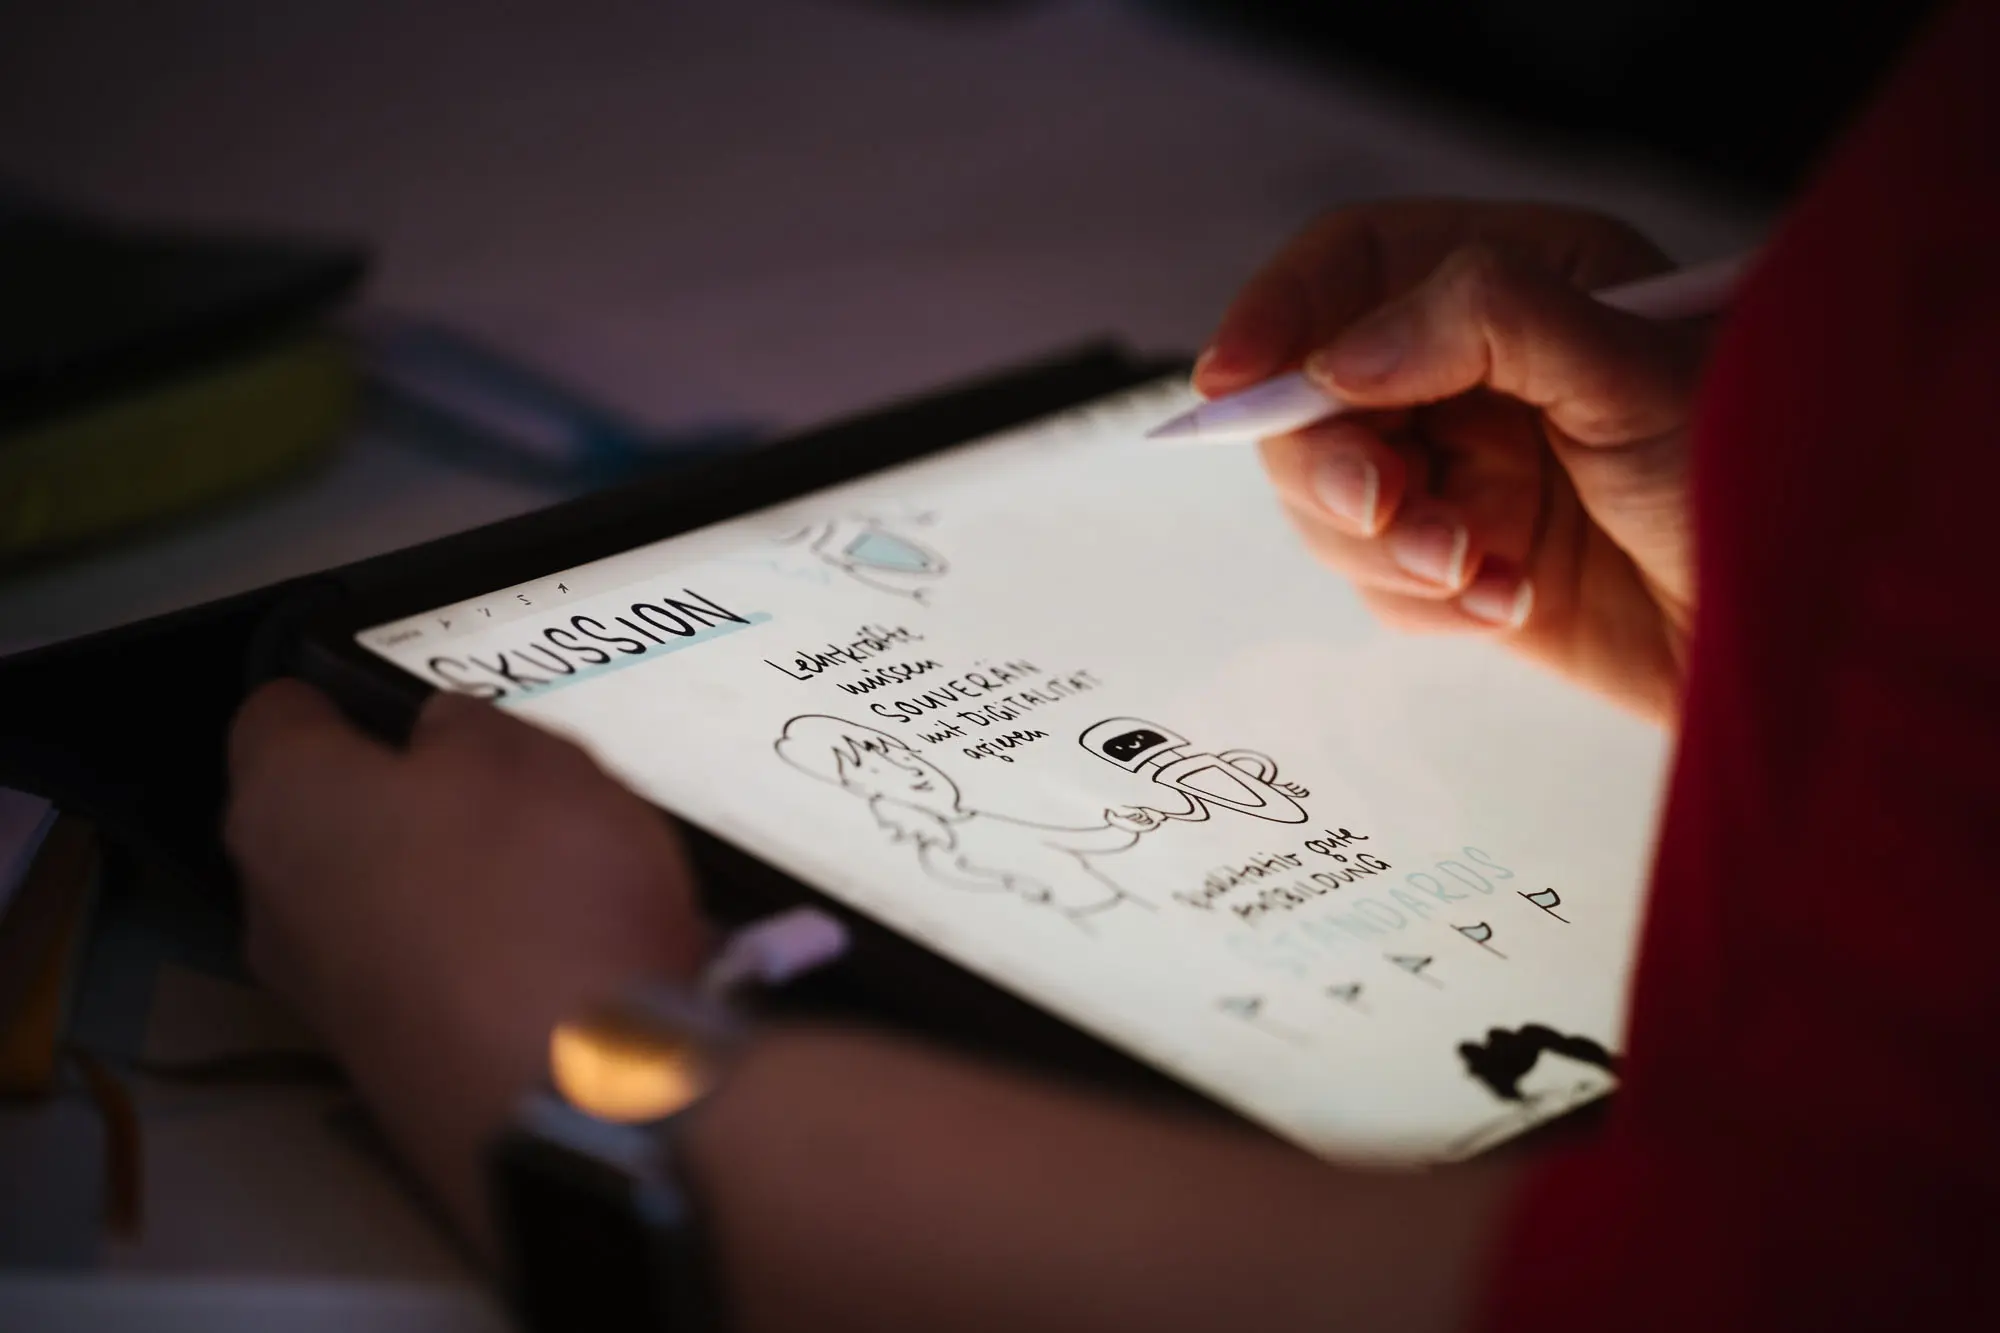 SKUSSION
Lehrkräfte
müssen
SOUVERÄN
mit DiGiTALiTÄT
agieren
Qualitativ gute
AUSBILDUNG
STANDARDS